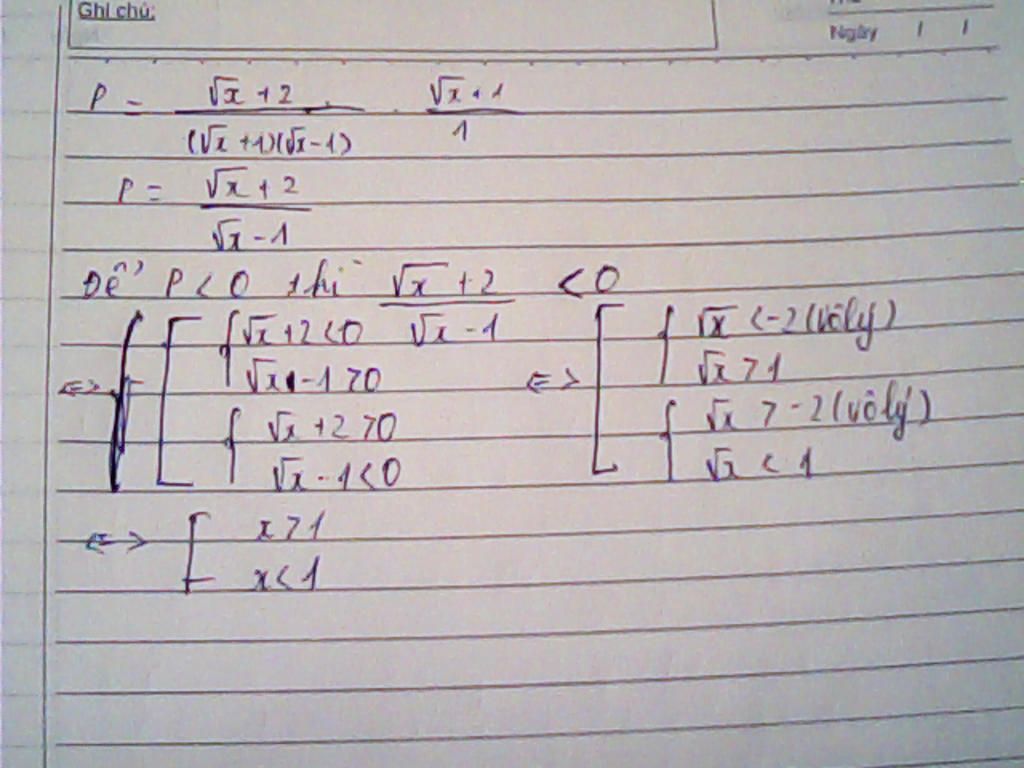 Ghi chú:
Ngày / /
P = (√x + 2)/((√x + 1)(√x - 1)) . (√x + 1)/1
P = (√x + 2)/(√x - 1)
Để P < 0 thì (√x + 2)/(√x - 1) < 0
<=> [ { √x + 2 < 0 ; √x - 1 > 0 <=> [ { √x < -2 (vô lý) ; √x > 1
{ √x + 2 > 0 ; √x - 1 < 0 { √x > -2 (vô lý) ; √x < 1
<=> [ x > 1
x < 1